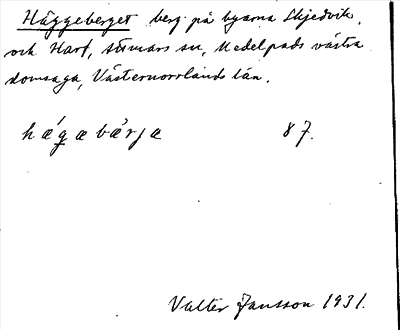 Häggeberget berg på byarna Skjedvik,
och Harf, Attmars sn, Medelpads västra
domsaga, Västernorrlands län.
hæ´gæbæ`rjæ 87.
Valter Jansson 1931.